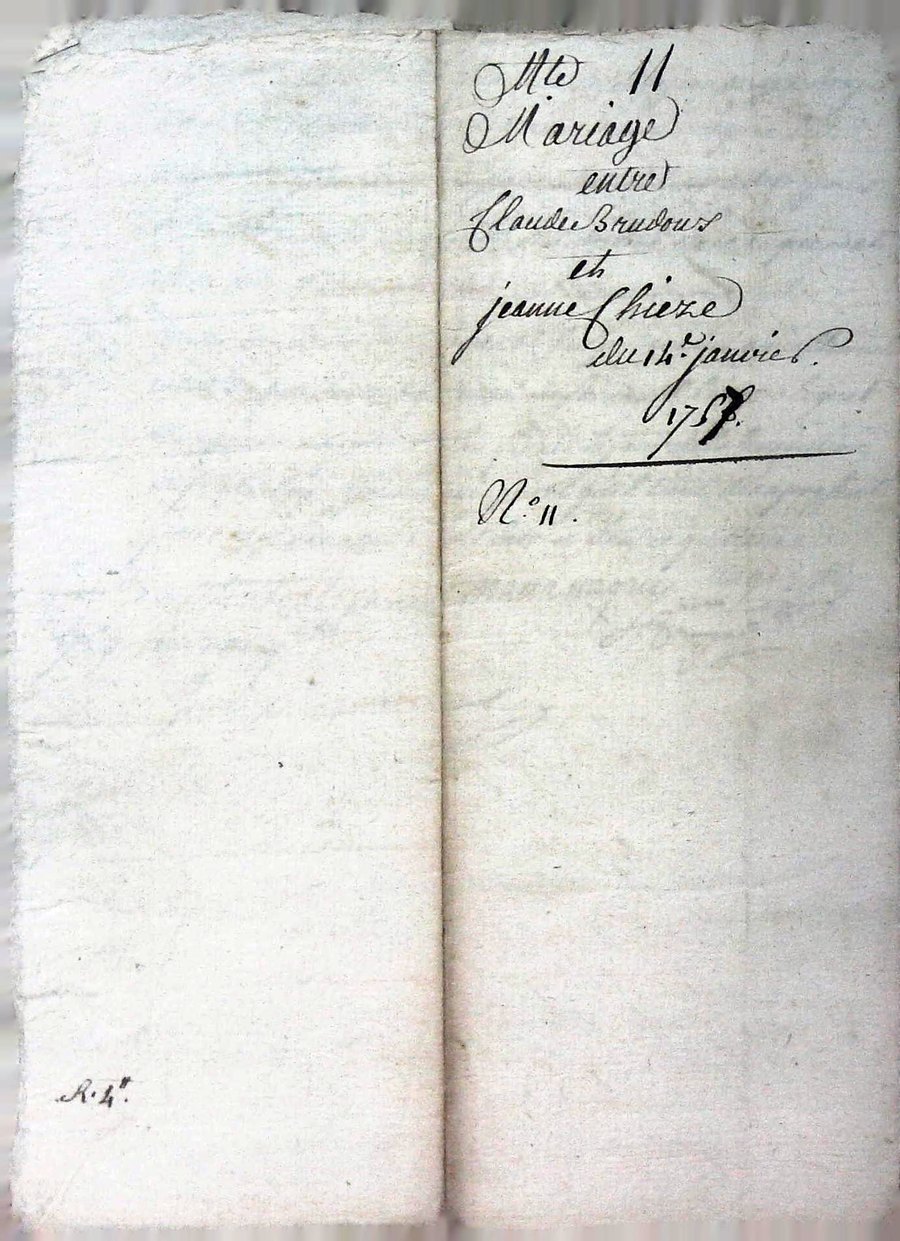 Mte 11
Mariage
entre
Claude Brudoux
et
jeanne Chieze
du 14e janvier.
1757.
No. 11.
R. 4tt.